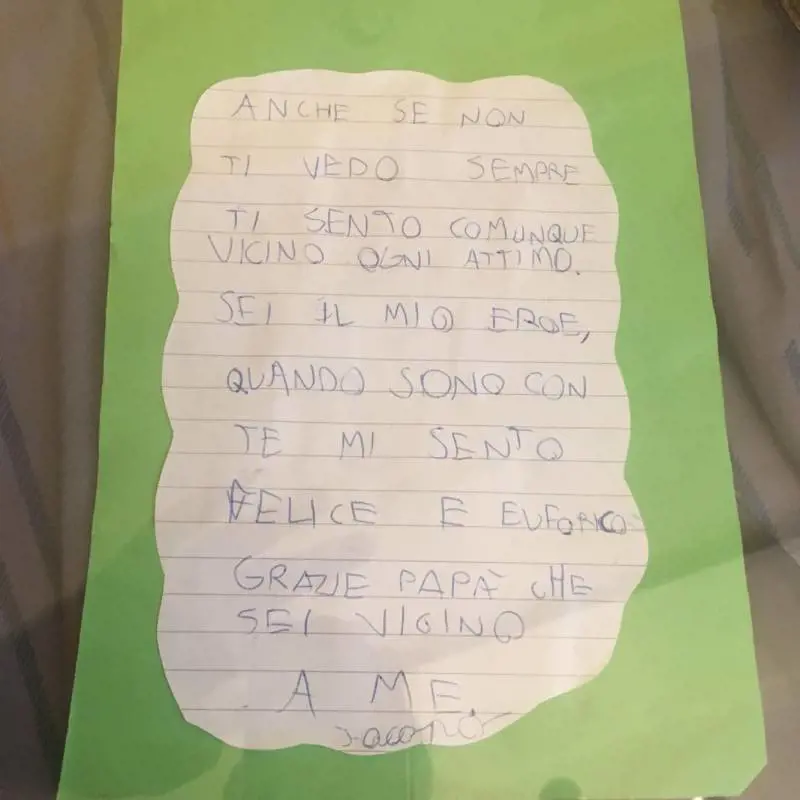 ANCHE SE NON
TI VEDO SEMPRE
TI SENTO COMUNQUE
VICINO OGNI ATTIMO.
SEI IL MIO EROE,
QUANDO SONO CON
TE MI SENTO
FELICE E EUFORICO
GRAZIE PAPÀ CHE
SEI VICINO
A ME.